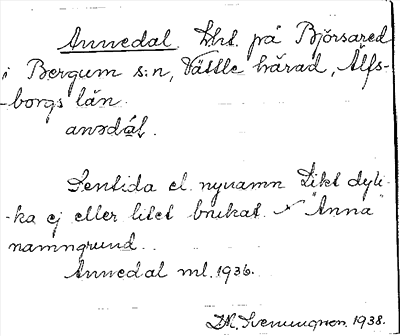 Annedal. Lht. på Björsared
i Bergum s:n, Vättle härad, Älfs-
borgs län.
anədál.
Sentida el. nynamn likt dyli-
ka ej eller litet brukat. "Anna"
namngrund.
Annedal ml. 1936.
Svenungson. 1938.